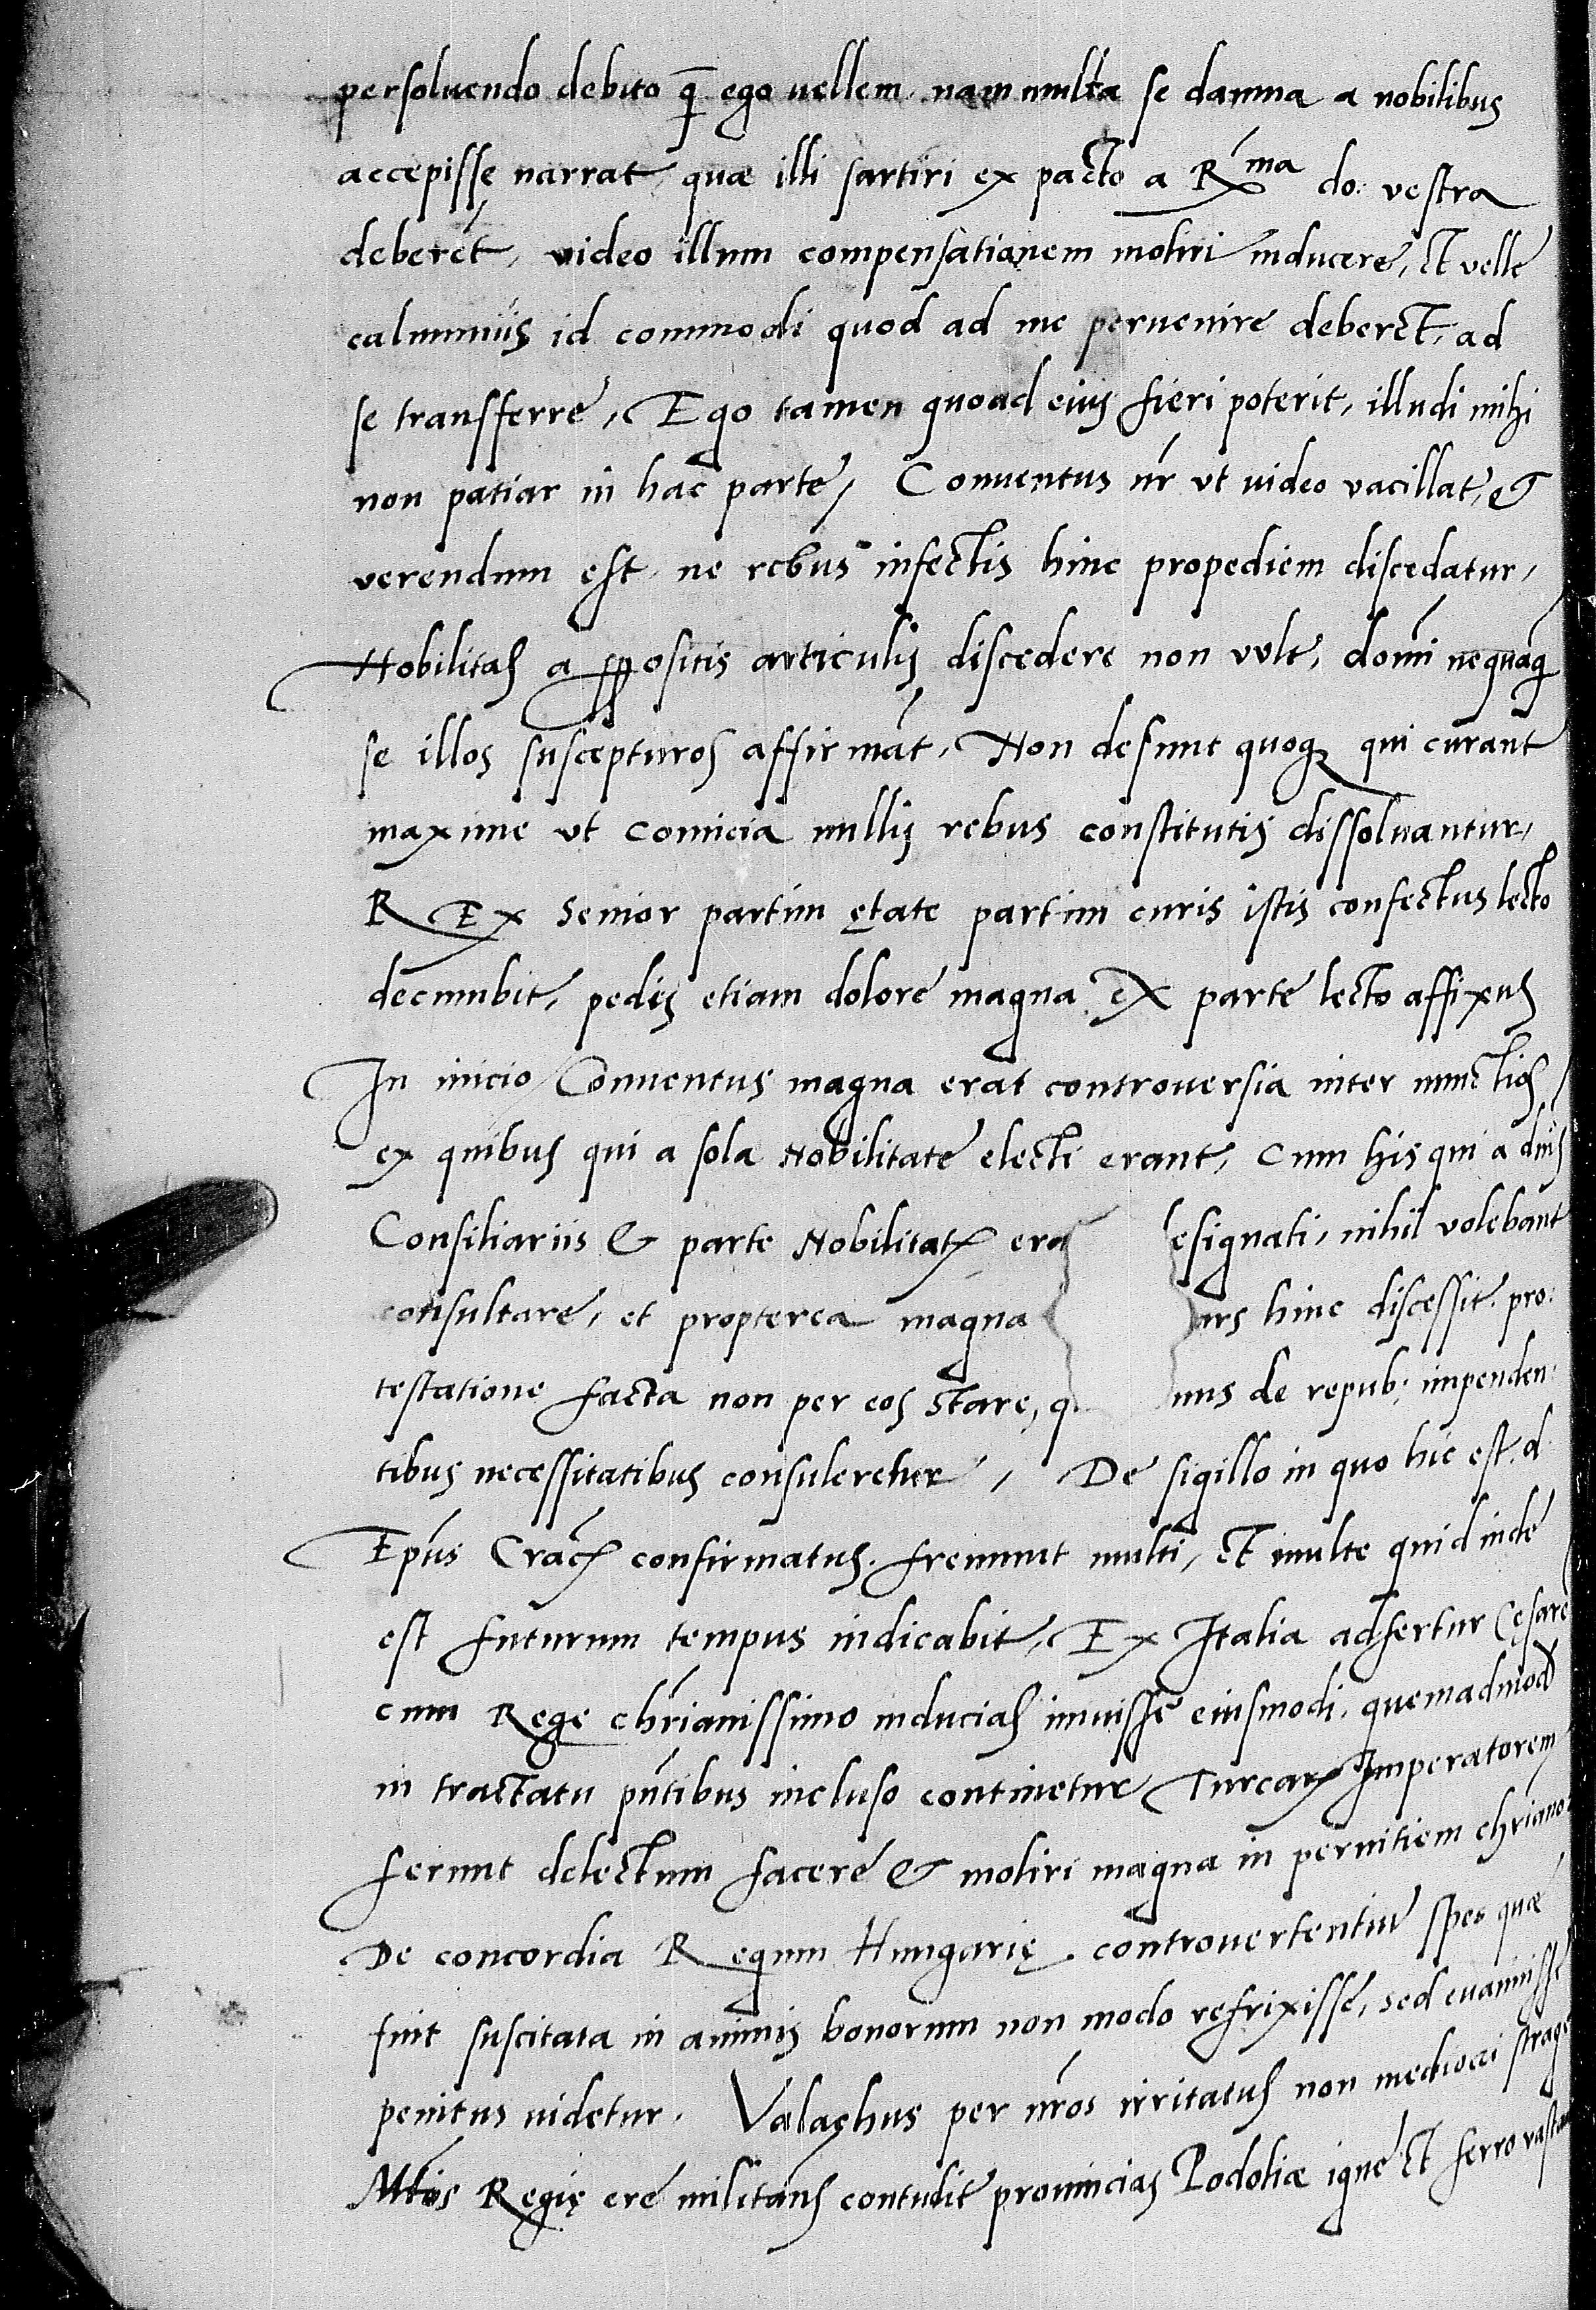 persoluendo debito q̄ ego uellem. nam multa se damna a nobilibus
accepisse narrat, quæ illi sartiri ex pacto a R<sup>ma</sup> do: vestra
deberēt, video illum compensationem moliri inducere, et velle
calumniis id commodi quod ad me peruenire deberet, ad
se transferre, Ego tamen quoad eius fieri poterit, illudi mihi
non patiar in hac parte, Conuentus nr̄ vt uideo vacillat, et
verendum est, ne rebus infectis hinc propediem discedatur,
Nobilitas a ꝓpositis articulis discedere non vult, domī nequaq̄
se illos suscepturos affirmāt, Non desunt quoq; qui curant
maxime vt comicia nullis rebus constitutis dissoluantur,
REx Senior partim ętate partim curis istis confectus lecto
decumbit, pedis etiam dolore magna ex parte lecto affixus
In inicio Conuentus magna erat controuersia inter nunctios,
ex quibus qui a sola Nobilitate electi erant, cum his qui a dnis
Consiliariis & parte Nobilitatꝭ era esignati, nihil volebant
consultare, et propterea magna ars hinc discessit. pro:
testatione facta non per eos stare, q nus de repub: impenden:
tibus necessitatibus consuleretur, De sigillo in quo hic est. d.
Ep̄us Crac̄ confirmatus. fremunt multi, et multe quid inde
est futurum tempus indicabit, Ex Italia adfertur Cęsare
cum Rege chr̄ianissimo inducias inuisse eiusmodi, quemadmod
in tractatu pn̄tibus incluso continetur, Turcaꝝ Imperatorem
ferunt delectum facere & moliri magna in pernitiem chr̄iano:
De concordia Regum Hungarię controuertentium spes quæ
fuit suscitata in animis bonorum non modo refrixisse, sed euanuisse
penitus uidetur. Valachus per nr̄os irritatus non mediocri strage
Mt̄is Regię ere militans contudit prouincias Podoliæ igne et ferro vasta